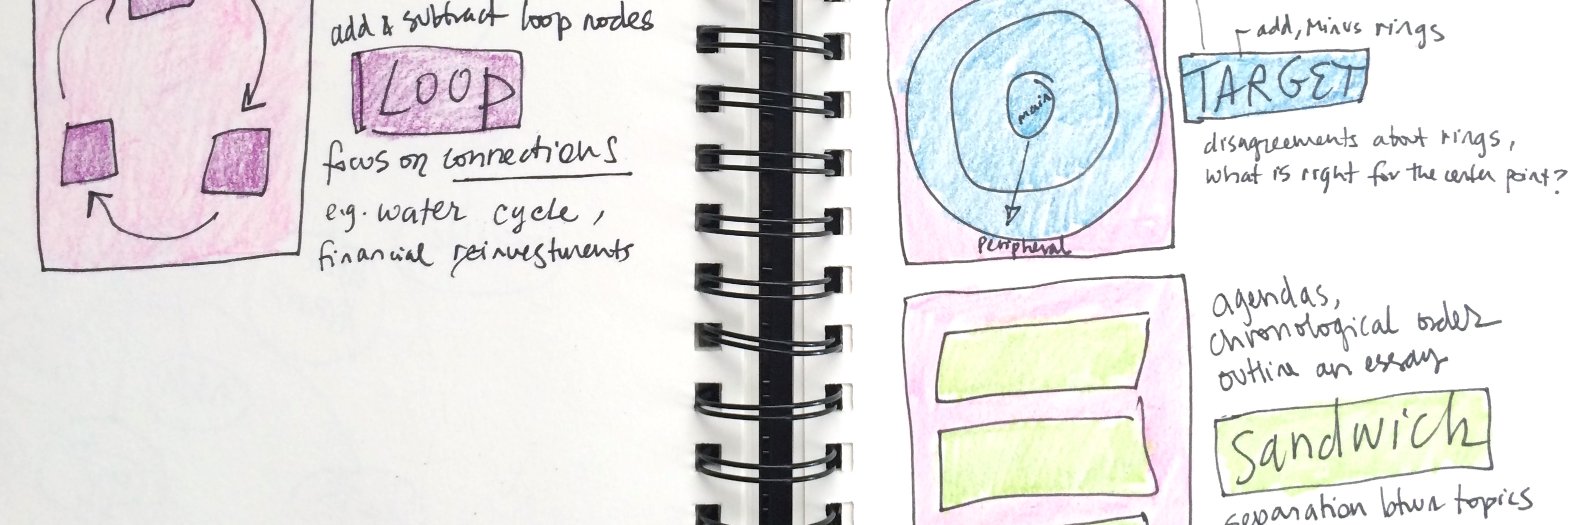 add & subtract loop nodes
LOOP
focus on connections
e.g. water cycle,
financial reinvestments
add, minus rings
TARGET
main
peripheral
disagreements about rings,
what is right for the center point?
agendas,
chronological order
outline an essay
Sandwich
separation btwn topics